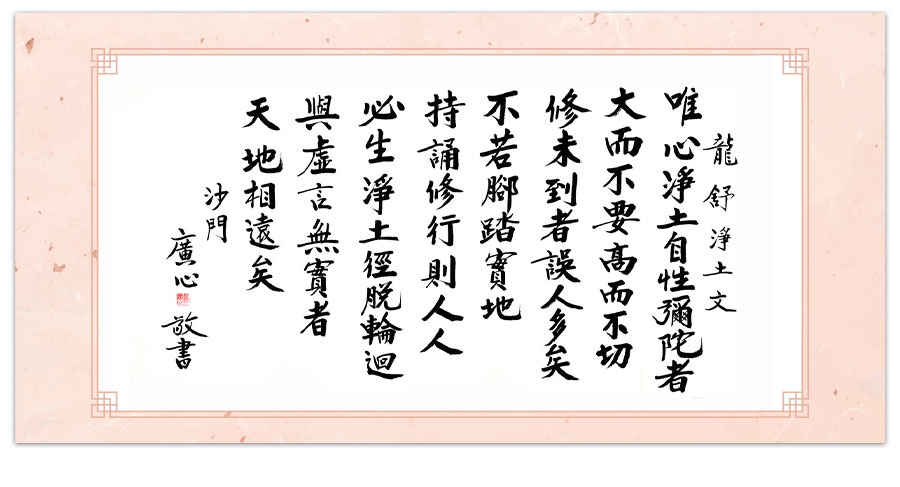 龍舒淨土文
唯心淨土自性彌陀者
大而不要高而不切
修未到者誤人多矣
不若腳踏實地
持誦修行則人人
必生淨土徑脫輪迴
與虛言無實者
天地相遠矣
沙門
廣心 敬書